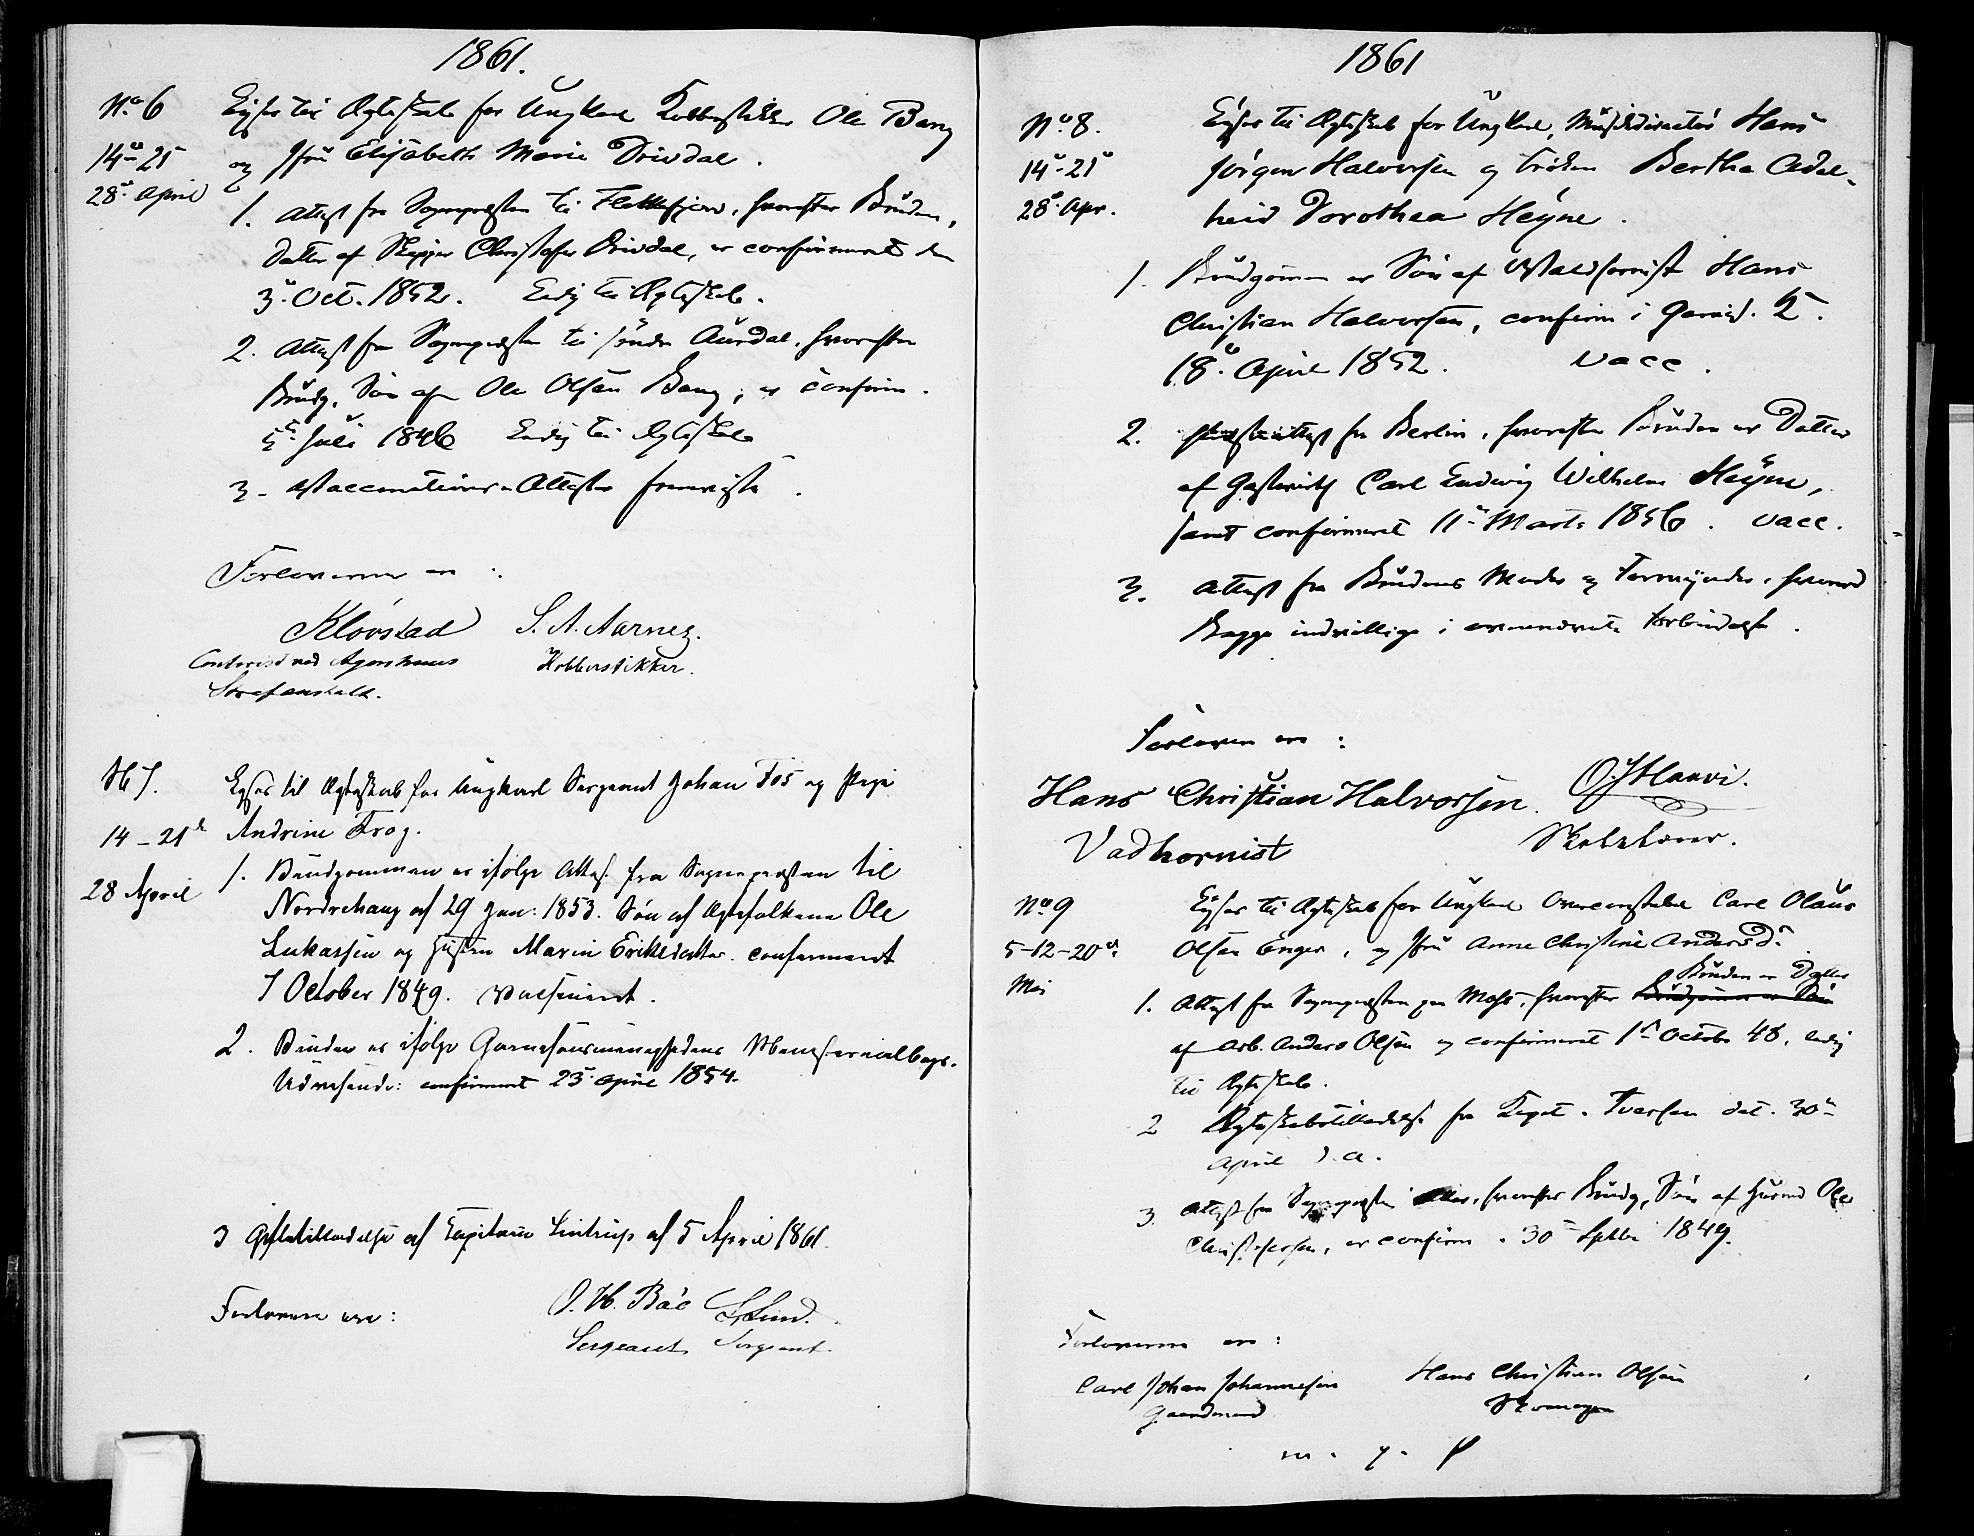 1861.
No 6
14de 21
28de April
Lyses til Ægteskab for Ungkarl Kobberstikker Ole Bang
og Jfru Elisabeth Marie Drivdal.
1. Attest fra Sognepræsten til Flekkefjord, hvorefter Bruden,
Datter af Skipper Christofer Drivdal, er confirmeret den
3die Oct. 1852. Ledig til Ægteskab.
2. Attest fra Sognepræsten til søndre Aurdal, hvorefter
Brudg. Søn af Ole Olsen Bang, er confirm.
5te Juli 1846 Ledig til Ægteskab
3. Vaccinations-Attester foreviste.
Forloverne ere:
Klövstad S. A. Aarnes.
Contorist ved Agershuus Kobberstikker.
Strafanstalt.
No 7.
14 – 21de
28 April
Lyses til Ægteskab for Ungkarl Sergeant Johan Fos og Pige
Andrine Frog.
1. Brudgommen er ifølge Attest fra Sognepræsten til
Nordrehaug af 29 Jan: 1853. Søn af Ægtefolkene Ole
Lukassen og Hustru Marin Eriksdatter. confirmeret
7 October 1849. Vaccineret.
2. Bruden er ifølge Garnisonsmenighedens Ministerialbogs
Udvisende: confirmeret 23de April 1854.
3 Giftetilladelse af Capitain Lintrup af 5 April 1861.
Forloverne ere:
O. H. Bäe Lund.
Sergeant Sergeant
1861
No 8.
14de 21de
28de Apr.
Lyses til Ægteskab for Ungkarl, Musikdirecteur Hans
Jörgen Halvorsen og Frøken Bertha Adel-
heid Dorothea Heyne.
1. Brudgommen er Søn af Valdhornist Hans
Christian Halvorsen, confirm i Garnis. K.
18de April 1852. vacc.
2. Attest fra Berlin, hvorefter Bruden er Datter
af Gastwirth Carl Ludwig Wilhelm Heyne,
samt confirmeret 11te Marts 1856. vacc.
3. Attest fra Brudens Moder og Formynder, hvorved
Begge indvillige i ovennævnte Forbindelse.
Forlovere ere:
Hans Christian Halvorsen.
Vadhornist Skolelærer.
No 9
5-12-20de
Mai
Lyses til Ægteskab for Ungkarl Overconstabel Carl Olaus
Olsen Enger, og Jfru Anne Christine Andersd.
Bruden er Datter
1. Attest fra Sognepræsten paa Moss, hvorefter Brudgommen er Søn
af Arb. Anders Olsen og confirmeret 1ste Octobr 48, ledig
til Ægteskab.
2 Ægteskabstilladelse fra Capt. Iversen dat. 30te
April d. A.
3. Attest fra Sognepræsten, hvorefter Brudg, Søn af Husmd Ole
Christophersen, er confirm. 30te Septbr 1849.
Forloverne ere:
Carl Johan Johannesen Hans Christian Olsen
Gaardmand Skomager
m. p. p